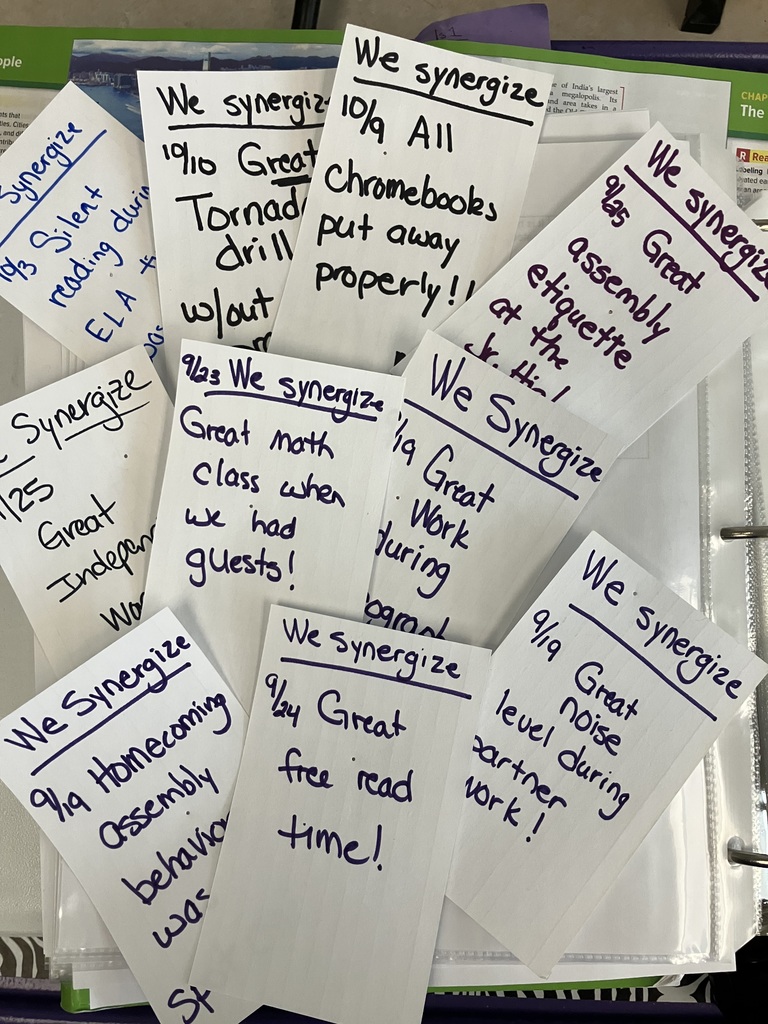 ople
Is 1
e of India's largest
megalopolis. Its
and area takes in a
CHAP
The
R Rea
Synergize
10/3 Silent
reading durin
ELA +
was
We synergiz
10/10 Great
Tornad
drill
w/out
We synergize
10/9 All
Chromebooks
put away
properly!!
We synergize
9/25 Great
assembly
etiquette
at the
Synergize
/25
Great
Indepen
Wo
9/23 We synergize
Great math
class when
we had
guests!
We Synergize
/19 Great
Work
during
We Synergize
9/19 Homecoming
assembly
behavio
was
St
We Synergize
9/24 Great
free read
time!
We synergize
9/19 Great
noise
level during
partner
work!